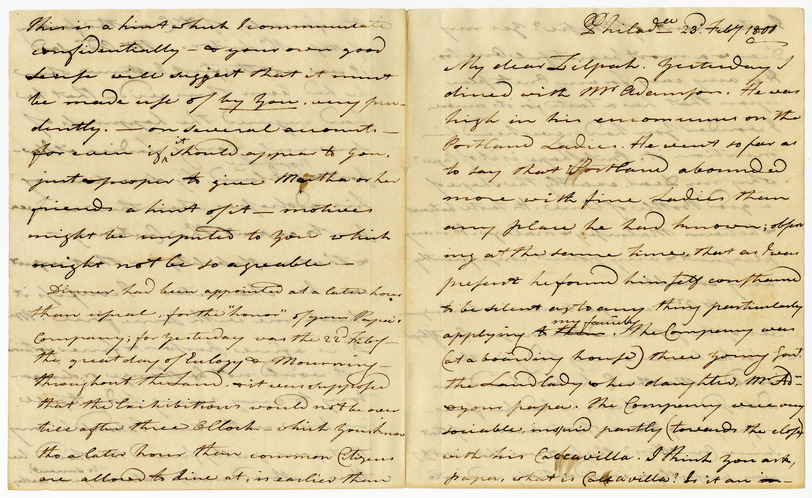 This is a hint which I communicate
confidentially — & your own good
sense will suggest that it must
be made use of by You. very pru-
dently. — on several accounts —
for even if it should appear to you,
just & proper to give Martha or her
friends a hint of it — motives
might be imputed to You which
might not be so agreeable —
Dinner had been appointed at a later hour
than usual, for the "honor" of your Papa's
Company; for Yesterday was the 22d Feby —
the great day of Eulogy & Mourning —
throughout the Land. & it was supposed
that the Exhibitions would not be over
till after three OClock — which You know
tho a later hour than common Citizens
are allowed to dine at, is earlier than
Philada. 23d. Feby 1800
My dear Zilpah. Yesterday I
dined with Mr Adamson. He was
high in his encomiums on the
Portland Ladies. He went so far as
to say that Portland abounded
more with fine Ladies than
any place he had known; observ
ing at the same time, that as I was
present he found himself constrained
to be silent as to any thing particularly
applying to my family. The Company was
(at a boarding house) three young Gent.
the Landlady & her daughter, Mr. Ad—
& your papa. The Company were very
sociable, partly (towards the close)
with his Caccavilla. I think you ask,
papa, what is Caccavilla? Is it an